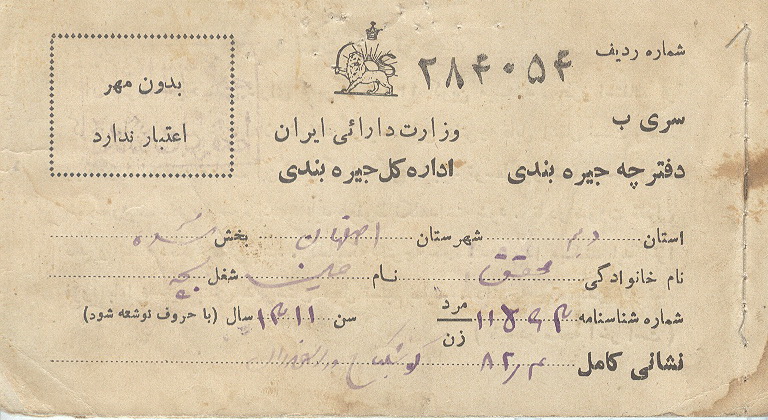 شماره ردیف ۲۸۴۰۵۴
سری ب
وزارت دارائی ایران
دفترچه جیره بندی
اداره کل جیره بندی
بدون مهر
اعتبار ندارد
استان دهم شهرستان اصفهان بخش
نام خانوادگی محقق نام حسین شغل بچه
شماره شناسنامه مرد زن سن ۱۳۱۱ سال (با حروف نوشته شود)
نشانی کامل